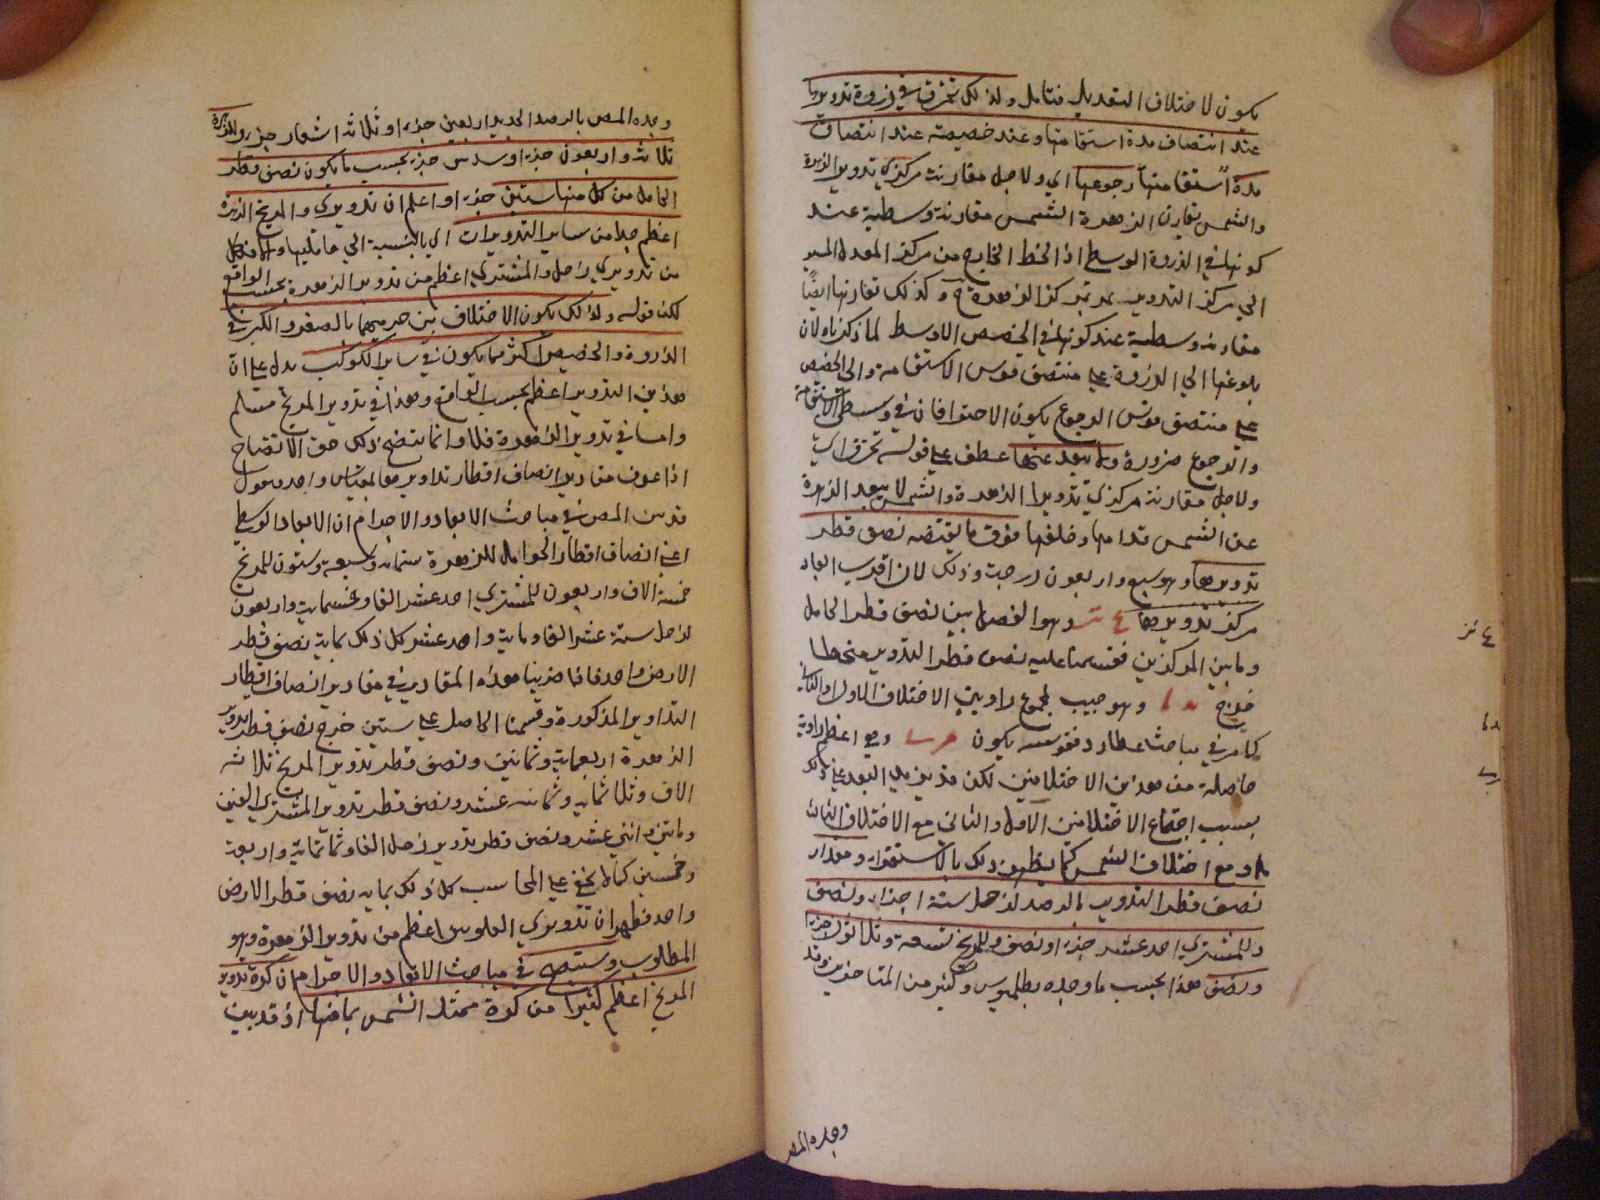 يكون لاختلاف التعديل فتامل ولذلك تحترق في ذروة تدويرها
عند انتصاف مدة استقامتها وعند حضيضه عند انتصاف
مدة استقامتها رجوعها اي ولاجل مقارنة مركزي تدوير الزهرة
والشمس يقارن الزهرة الشمس مقارنة وسطية عند
كونها في الذروة الوسطى اذ الخط الخارج من مركز المعدل المسير
الي مركز التدوير يمر بمركز الزهرة ح وكذلك تقارنها ايضا
مقارنة وسطية عند كونها في الحضيض الاوسط لما ذكرناه لان
بلوغها الي الذروة على منتصف قوس الاستقامة والى الحضيض
على منتصف قوس الرجوع يكون الاحتراقان في وسطى الاستقامة
والرجوع ضرورة ولا يبعد عنها عطف على قوله تحترق اي
ولاجل مقارنة مركزي تدويرا الزهرة والشمس لا يبعد الزهرة
عن الشمس قدامها وخلفها فوق ما يقتضيه نصف قطر
تدويرها وهو سبع واربعون درجة وذلك لان اقرب ابعاد
مركز تدويرها وهو الفضل بين نصف قطر الحامل
وما بين المركزين فقسمنا عليه نصف قطر التدوير منحطا
فخرج وهو جيب لمجموع زاويتي الاختلاف الاول والثاني
كما مر في مباحث عطارد فقوسه يكون وهي اعظم زاوية
حاصلة من هذين الاختلافين لكن قد يزيد البعد على ذلك
بسبب اجتماع الاختلافين الاول والثاني مع الاختلاف الثالث
او مع اختلاف الشمس كما يظهر ذلك بالاستقراء ومقدار
نصف قطر التدوير بالرصد لزحل ستة اجزاء ونصف
وللمشتري احد عشر جزءا ونصف وللمريخ تسعة وثلاثون جزء
ونصف هذا بحسب ما وجده بطلميوس وكثير من المتاخرين وقد
وجده المص
وجده المص بالرصد الجديد اربعين جزءا وثلاثة اعشار جزء وللزهرة
ثلاثة واربعون جزءا وسدس جزء بحسب ما يكون نصف قطر
الحامل من كل منها ستين جزءا واعلم ان تدويري والمريخ الزهرة
اعظم جدا من ساير التدويرات اي بالنسبة الي حامليها والا فكل
من تدويري زحل والمشتري اعظم من تدوير الزهرة بحسب الواقع
لكن قوله ولذلك يكون الاختلاف بين جرميهما بالصغر والكبر في
الذروة والحضيض اكثر مما يكون في ساير الكواكب يدل على ان
هذين التدوير اعظم بحسب الواقع وهذا في تدوير المريخ مسلم
واما في تدوير الزهرة فلا وانما يتضح ذلك حق الاتضاح
اذا عرف مقادير انصاف اقطار تداويرها بمقياس واحد فنقول
قد بين المص في مباحث الابعاد والاجرام ان الابعاد الوسطى
اعني انصاف اقطار الحوامل للزهرة ستمائة وسبعة وستون للمريخ
خمسة الاف واربعون للمشتري احد عشر الفا وخمسماية واربعون
لزحل ستة عشر الفا وماية واحد عشر كل ذلك بماية نصف قطر
الارض واحد فاذا ضربنا هذه المقادير في مقادير انصاف اقطار
التداوير المذكورة وقسمنا الحاصل على ستين خرج نصف قطر تدوير
الزهرة اربعماية وثمانين ونصف قطر تدوير المريخ ثلاثة
الاف وثلثمائة وثمانية عشر ونصف قطر تدوير المشتري الفين
ومايتين واثني عشر ونصف قطر تدوير زحل الفا وثمانماية واربعة
وخمسين كما لا يخفى على المحاسب كل ذلك بما به نصف قطر الارض
واحد فظهر ان تدويري العلويين اعظم من تدوير الزهرة وهو
المطلوب وستضح في مباحث الابعاد والاجرام ان كرة تدوير
المريخ اعظم كثيرا من كرة ممثل الشمس بما فيها اذ قد بين